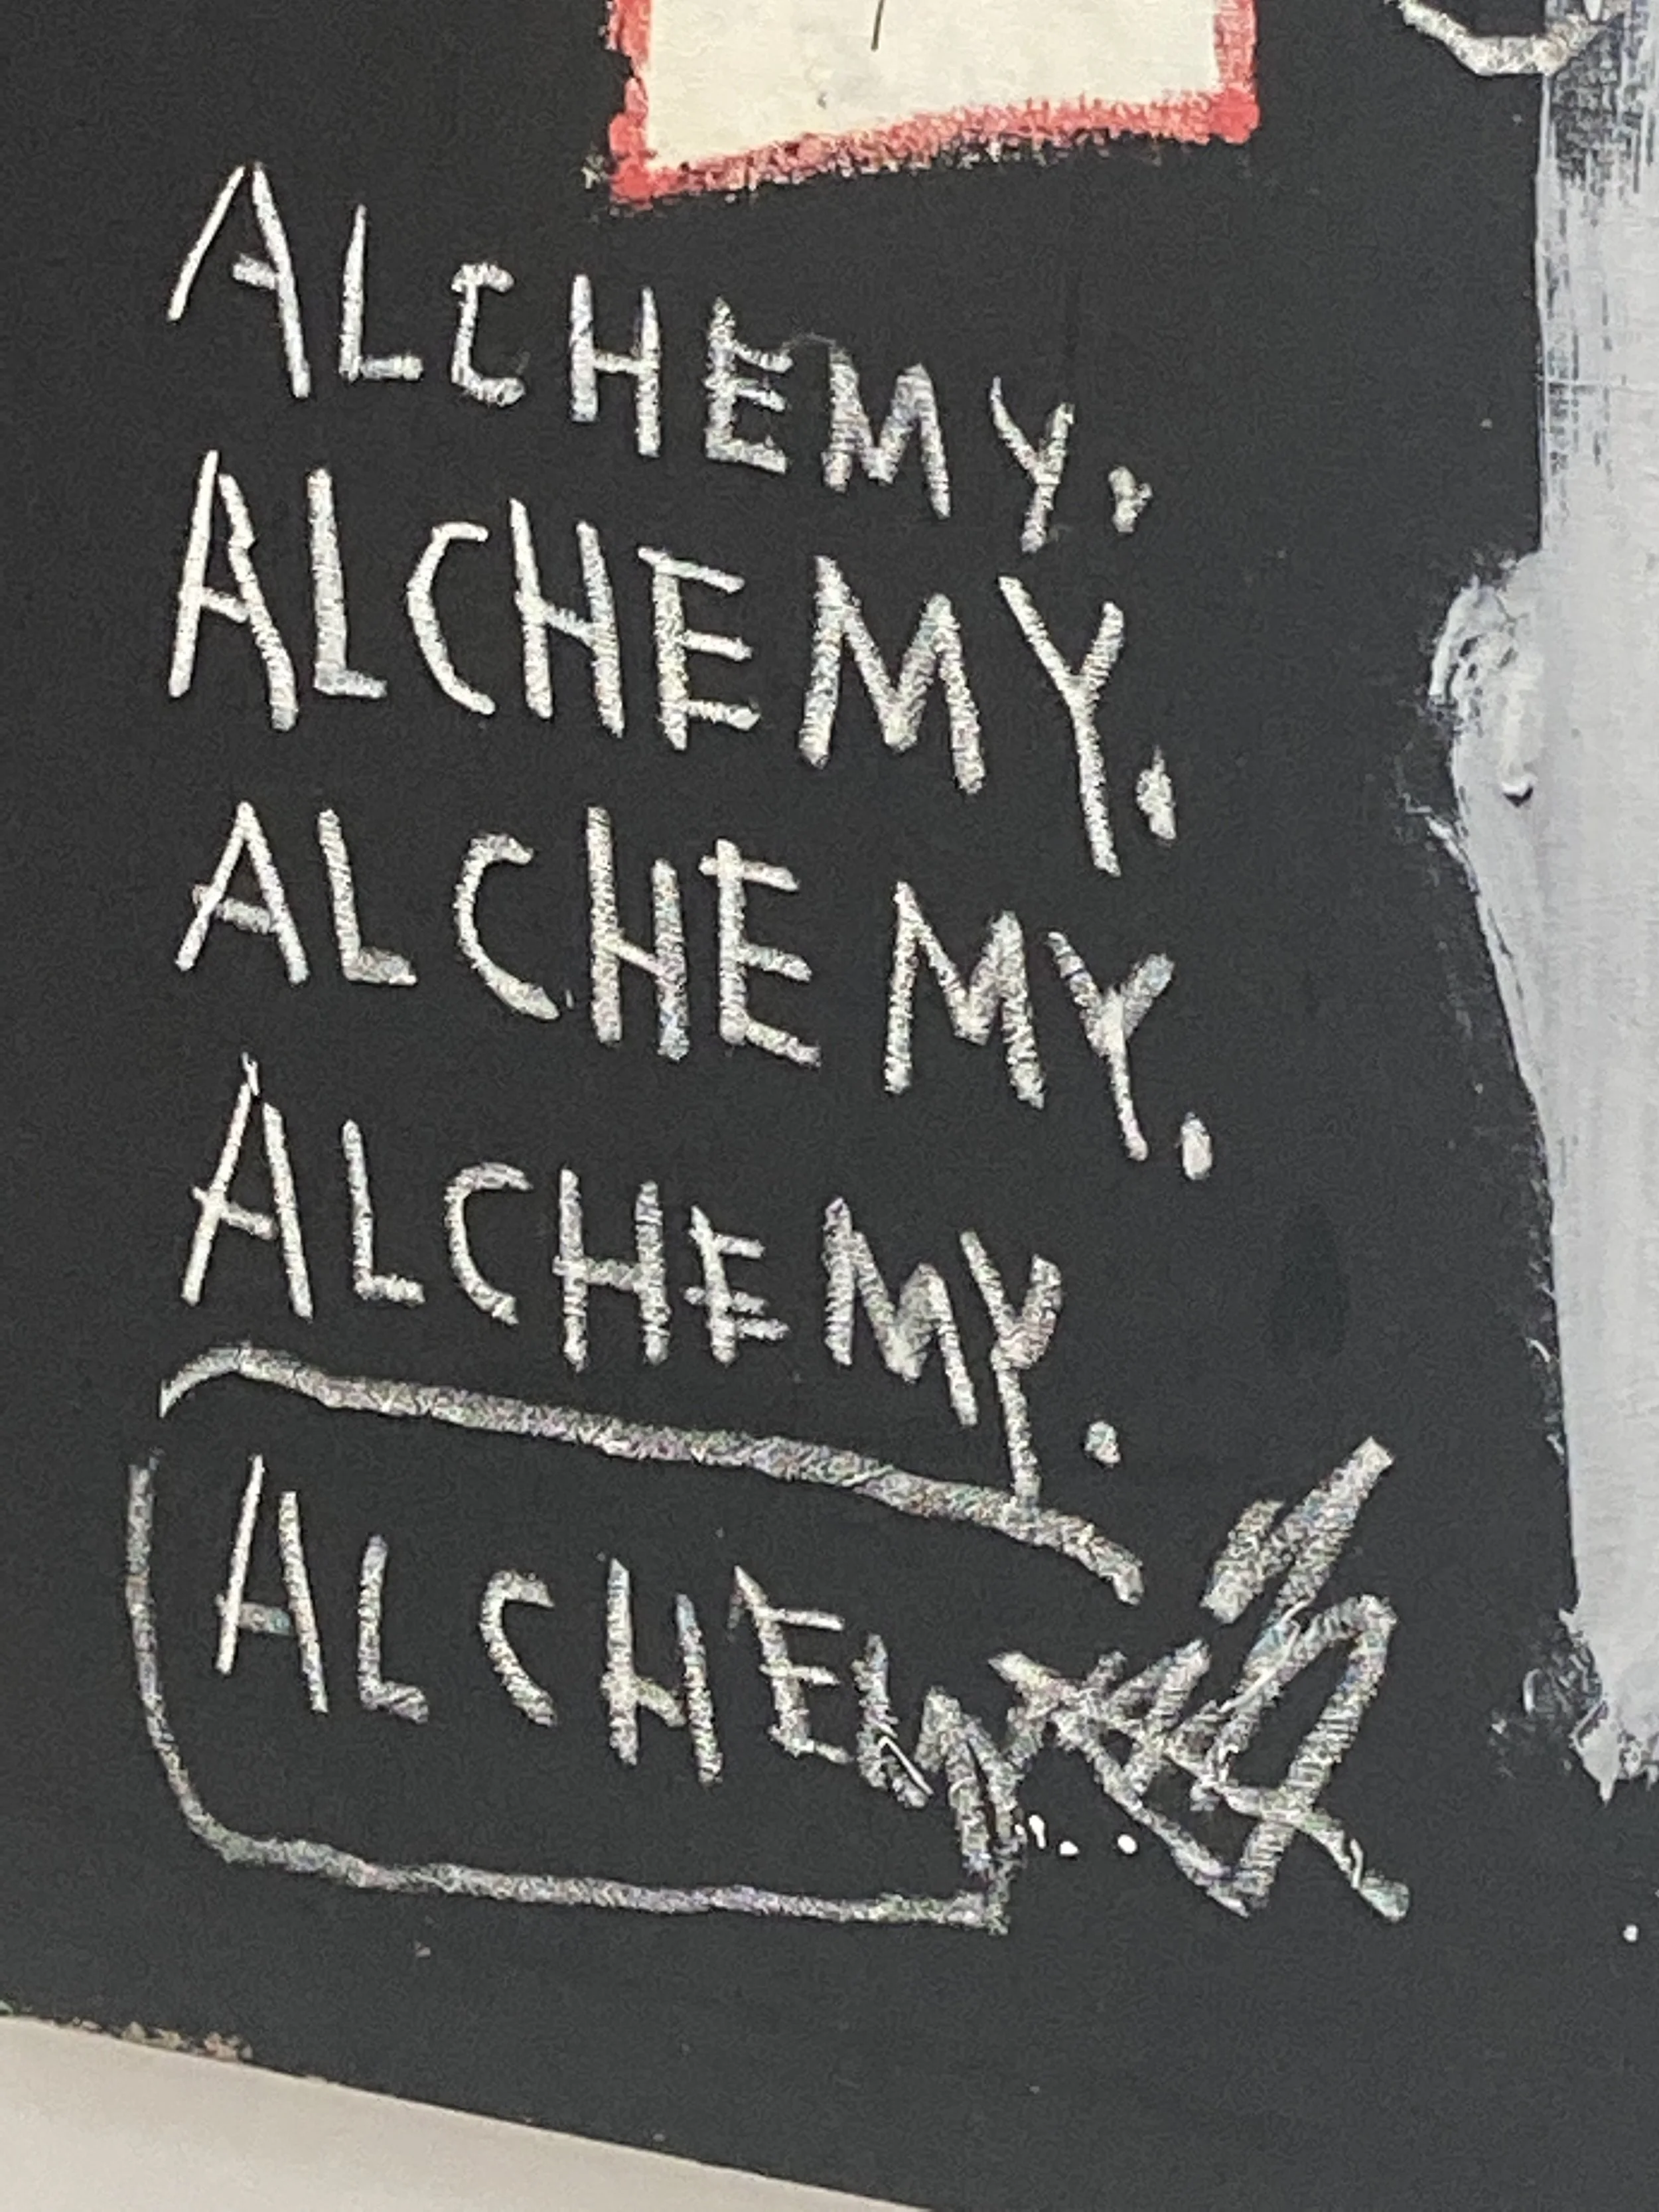 ALCHEMY.
ALCHEMY.
ALCHEMY.
ALCHEMY.
ALCHEM